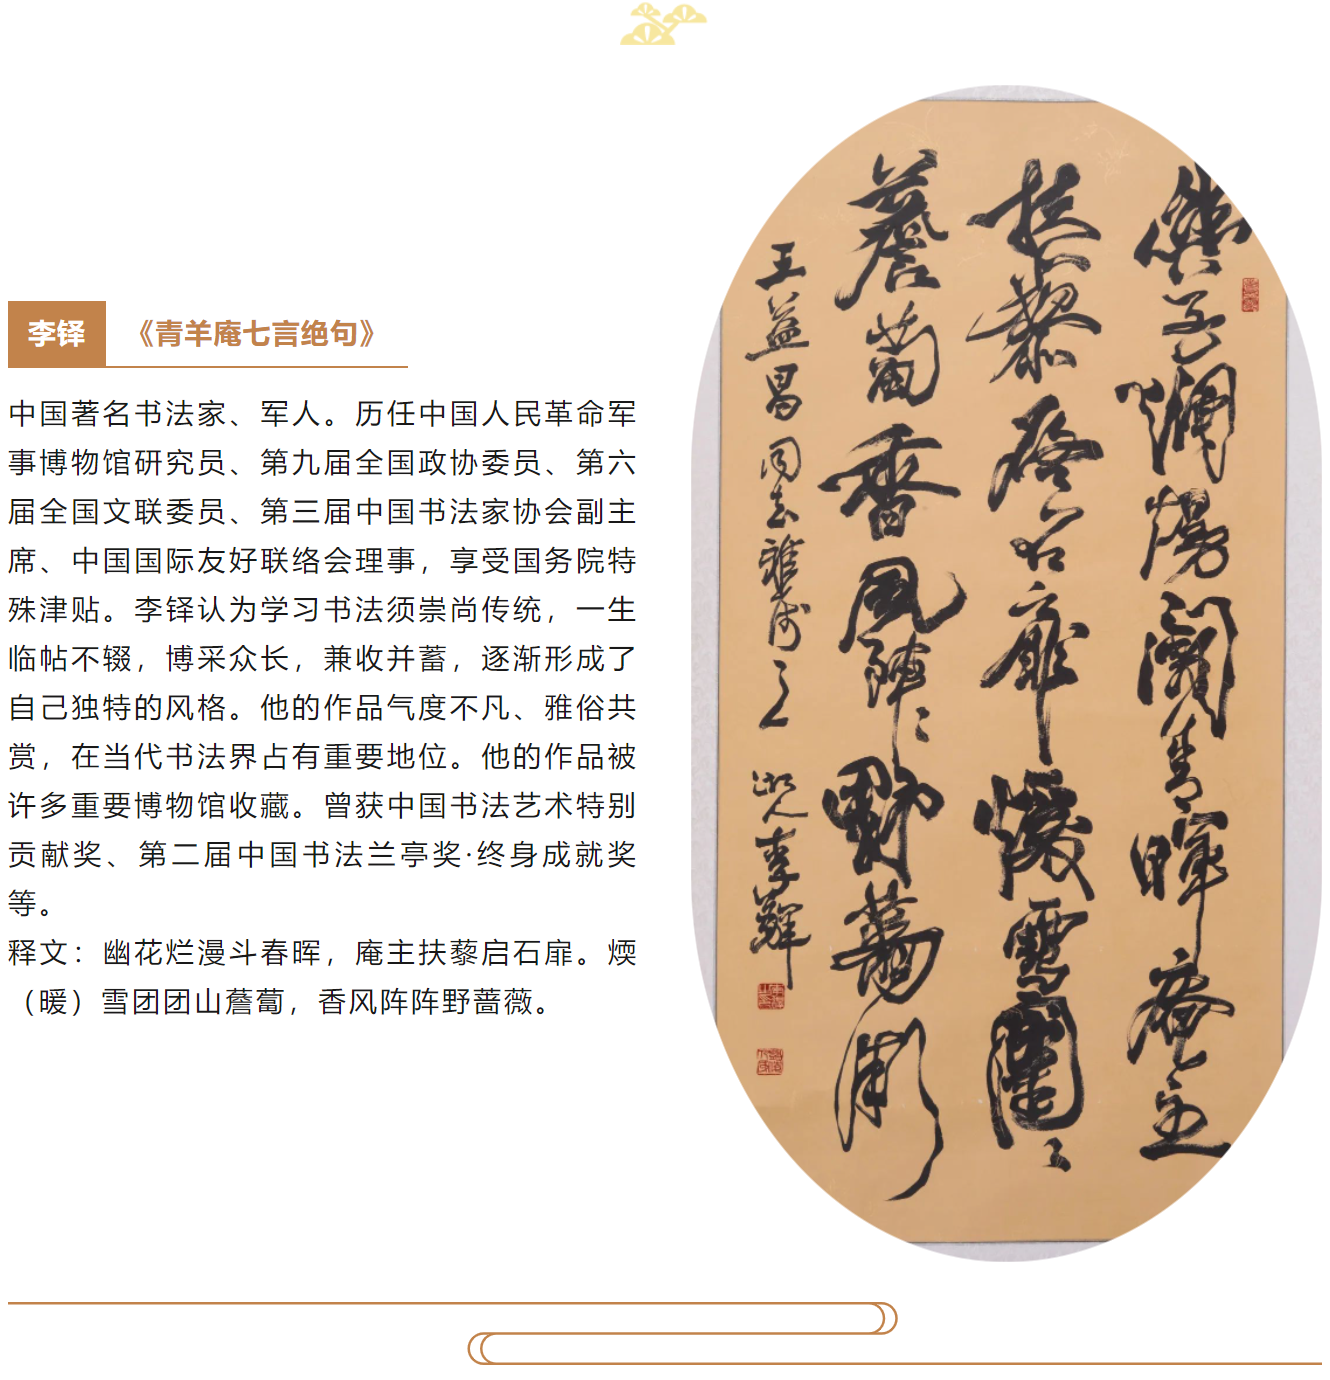 李铎
《青羊庵七言绝句》
中国著名书法家、军人。历任中国人民革命军
事博物馆研究员、第九届全国政协委员、第六
届全国文联委员、第三届中国书法家协会副主
席、中国国际友好联络会理事，享受国务院特
殊津贴。李铎认为学习书法须崇尚传统，一生
临帖不辍，博采众长，兼收并蓄，逐渐形成了
自己独特的风格。他的作品气度不凡、雅俗共
赏，在当代书法界占有重要地位。他的作品被
许多重要博物馆收藏。曾获中国书法艺术特别
贡献奖、第二届中国书法兰亭奖·终身成就奖
等。
释文：幽花烂漫斗春晖，庵主扶藜启石扉。煗
（暖）雪团团山薝蔔，香风阵阵野蔷薇。
爛熳鬪春暉庵主
扶藜啓石扉煖雪團〻
薝蔔香風陣〻野薔薇
王益昌同志雅
李鐸